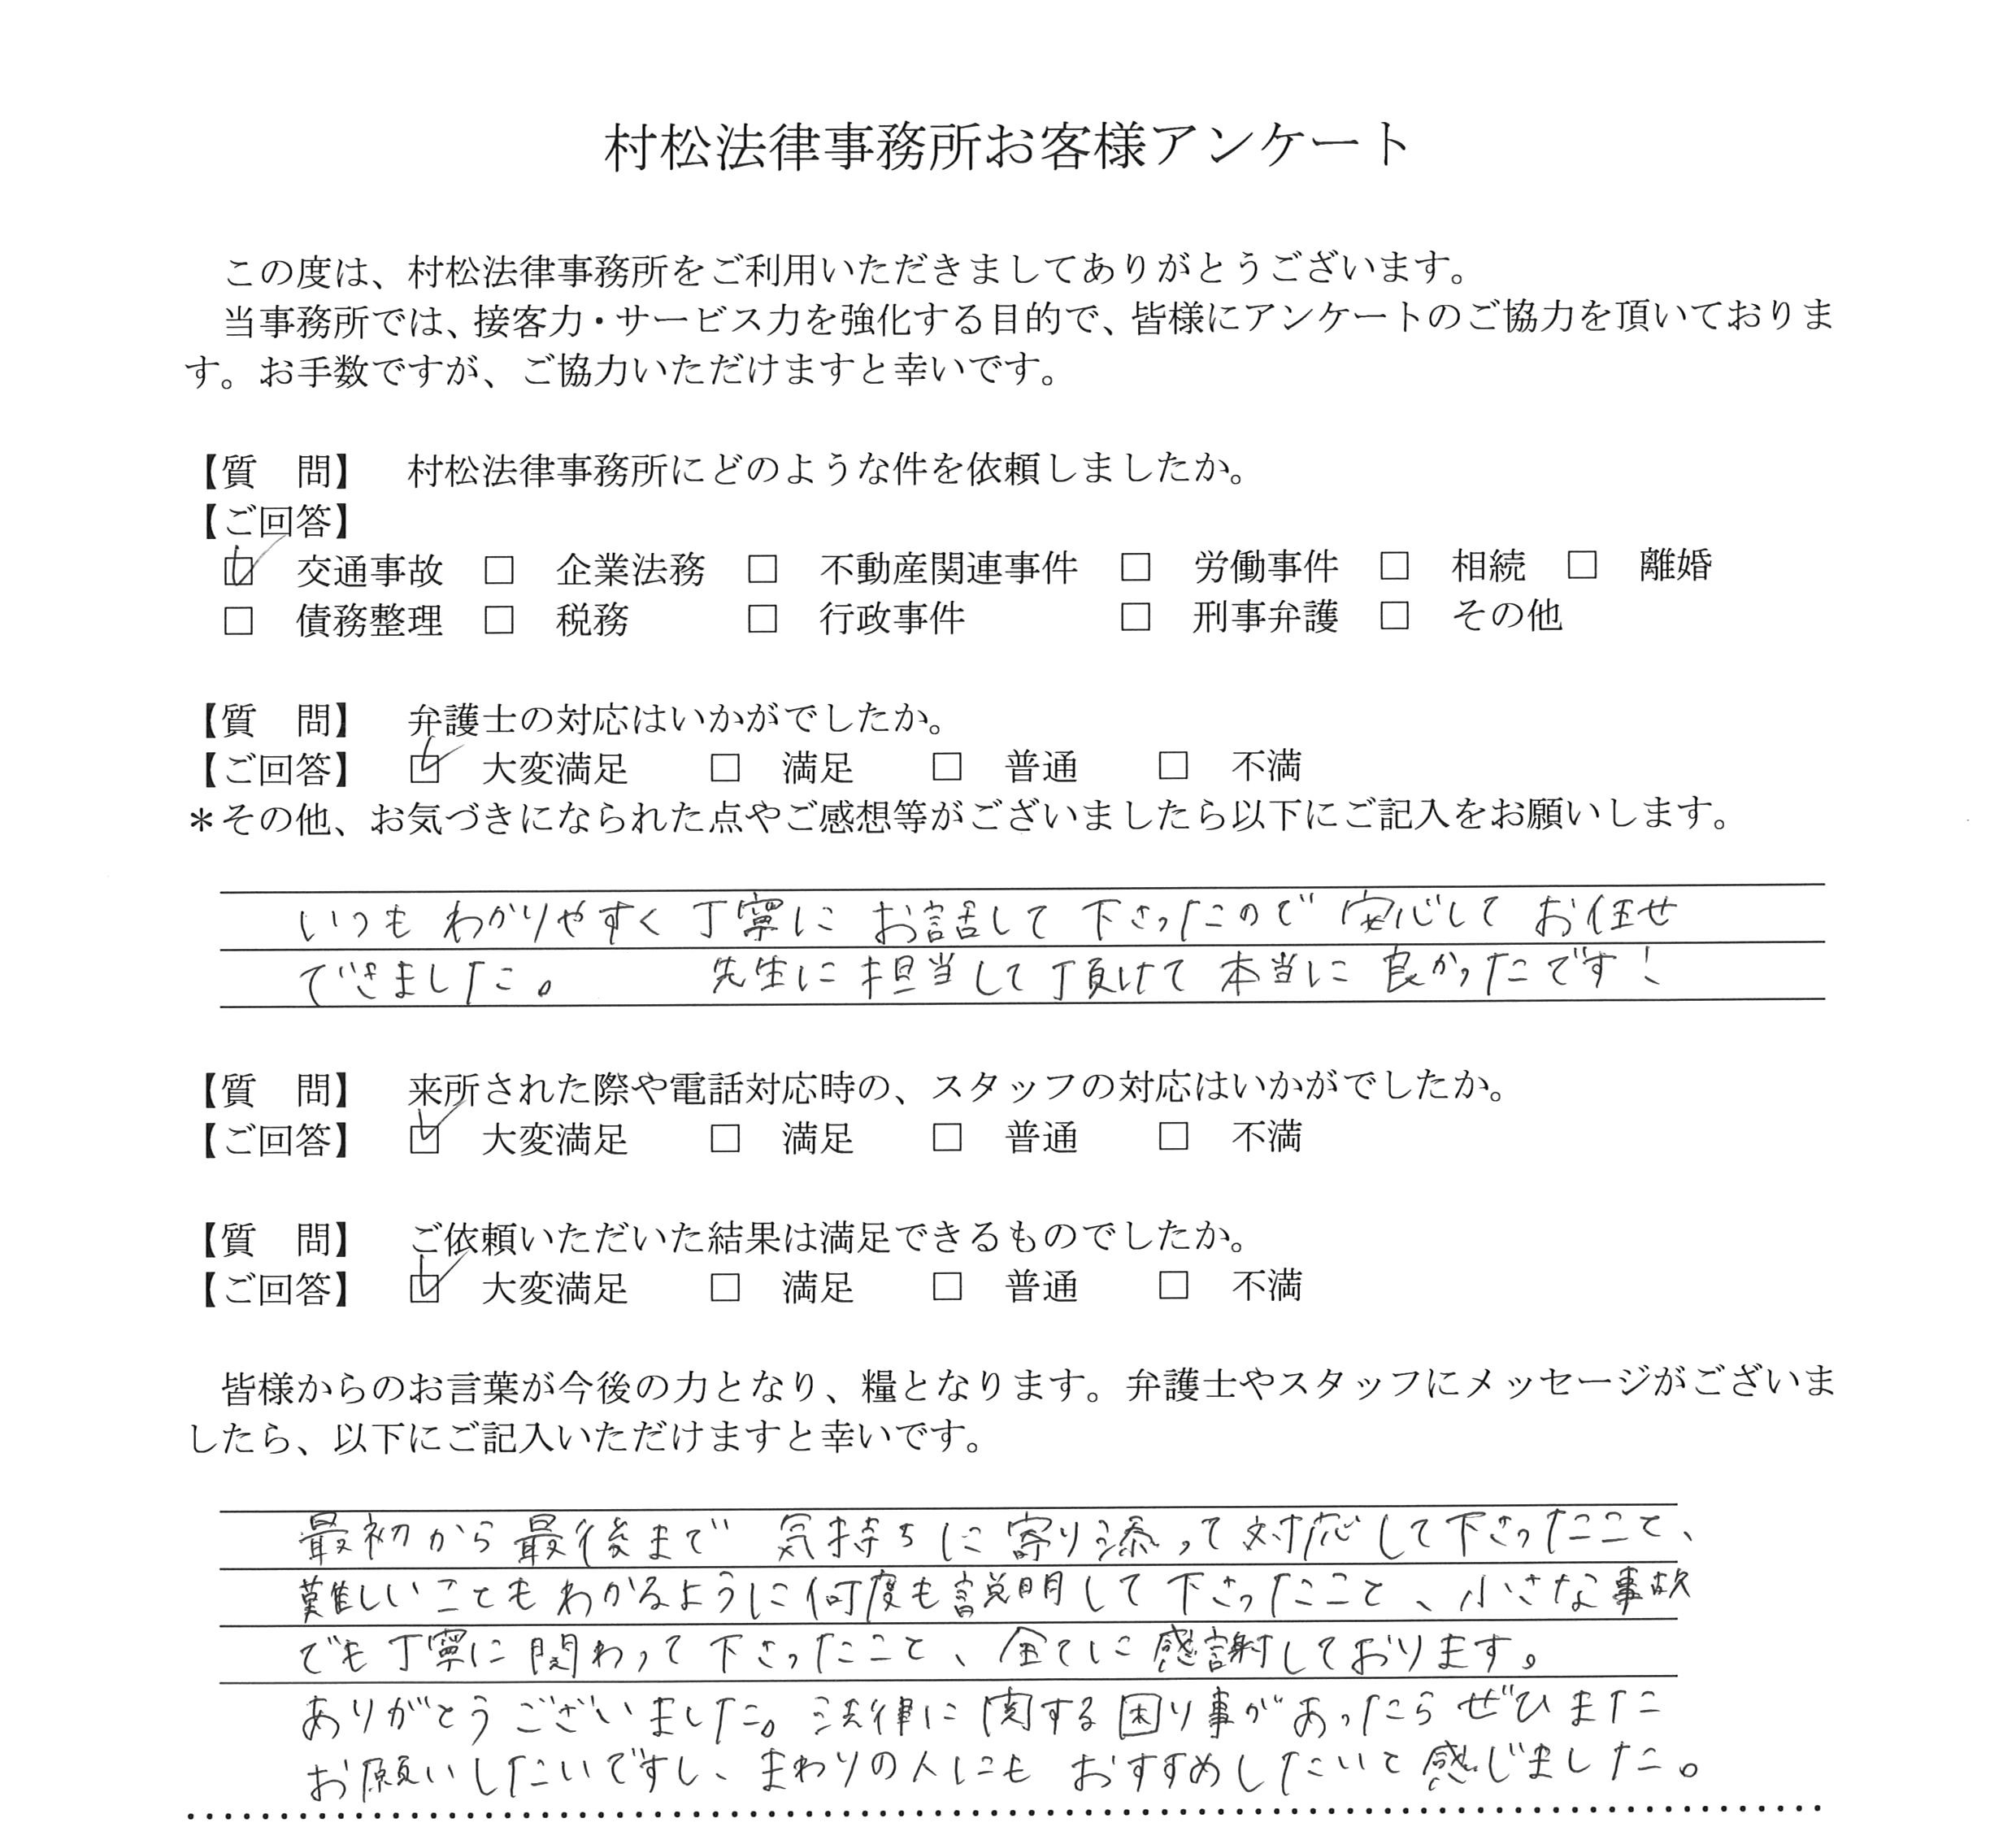 村松法律事務所お客様アンケート
この度は、村松法律事務所をご利用いただきましてありがとうございます。
当事務所では、接客力・サービス力を強化する目的で、皆様にアンケートのご協力を頂いておりま
す。お手数ですが、ご協力いただけますと幸いです。
【質　問】　村松法律事務所にどのような件を依頼しましたか。
【ご回答】
☑　交通事故　□　企業法務　□　不動産関連事件　□　労働事件　□　相続　□　離婚
□　債務整理　□　税務　□　行政事件　□　刑事弁護　□　その他
【質　問】　弁護士の対応はいかがでしたか。
【ご回答】　☑　大変満足　□　満足　□　普通　□　不満
＊その他、お気づきになられた点やご感想等がございましたら以下にご記入をお願いします。
いつも わかりやすく 丁寧に お話して 下さったので 安心して お任せ
できました。　先生に 担当して 頂けて 本当に 良かったです！
【質　問】　来所された際や電話対応時の、スタッフの対応はいかがでしたか。
【ご回答】　☑　大変満足　□　満足　□　普通　□　不満
【質　問】　ご依頼いただいた結果は満足できるものでしたか。
【ご回答】　☑　大変満足　□　満足　□　普通　□　不満
皆様からのお言葉が今後の力となり、糧となります。弁護士やスタッフにメッセージがございま
したら、以下にご記入いただけますと幸いです。
最初から最後まで 気持ちに 寄り添って 対応して下さったこと、
難しいこともわかるように何度も説明して下さったこと、小さな事故
でも丁寧に関わって下さったこと、全てに感謝しております。
ありがとうございました。法律に関する困り事があったらぜひまた
お願いしたいですし、まわりの人にも おすすめしたいと感じました。